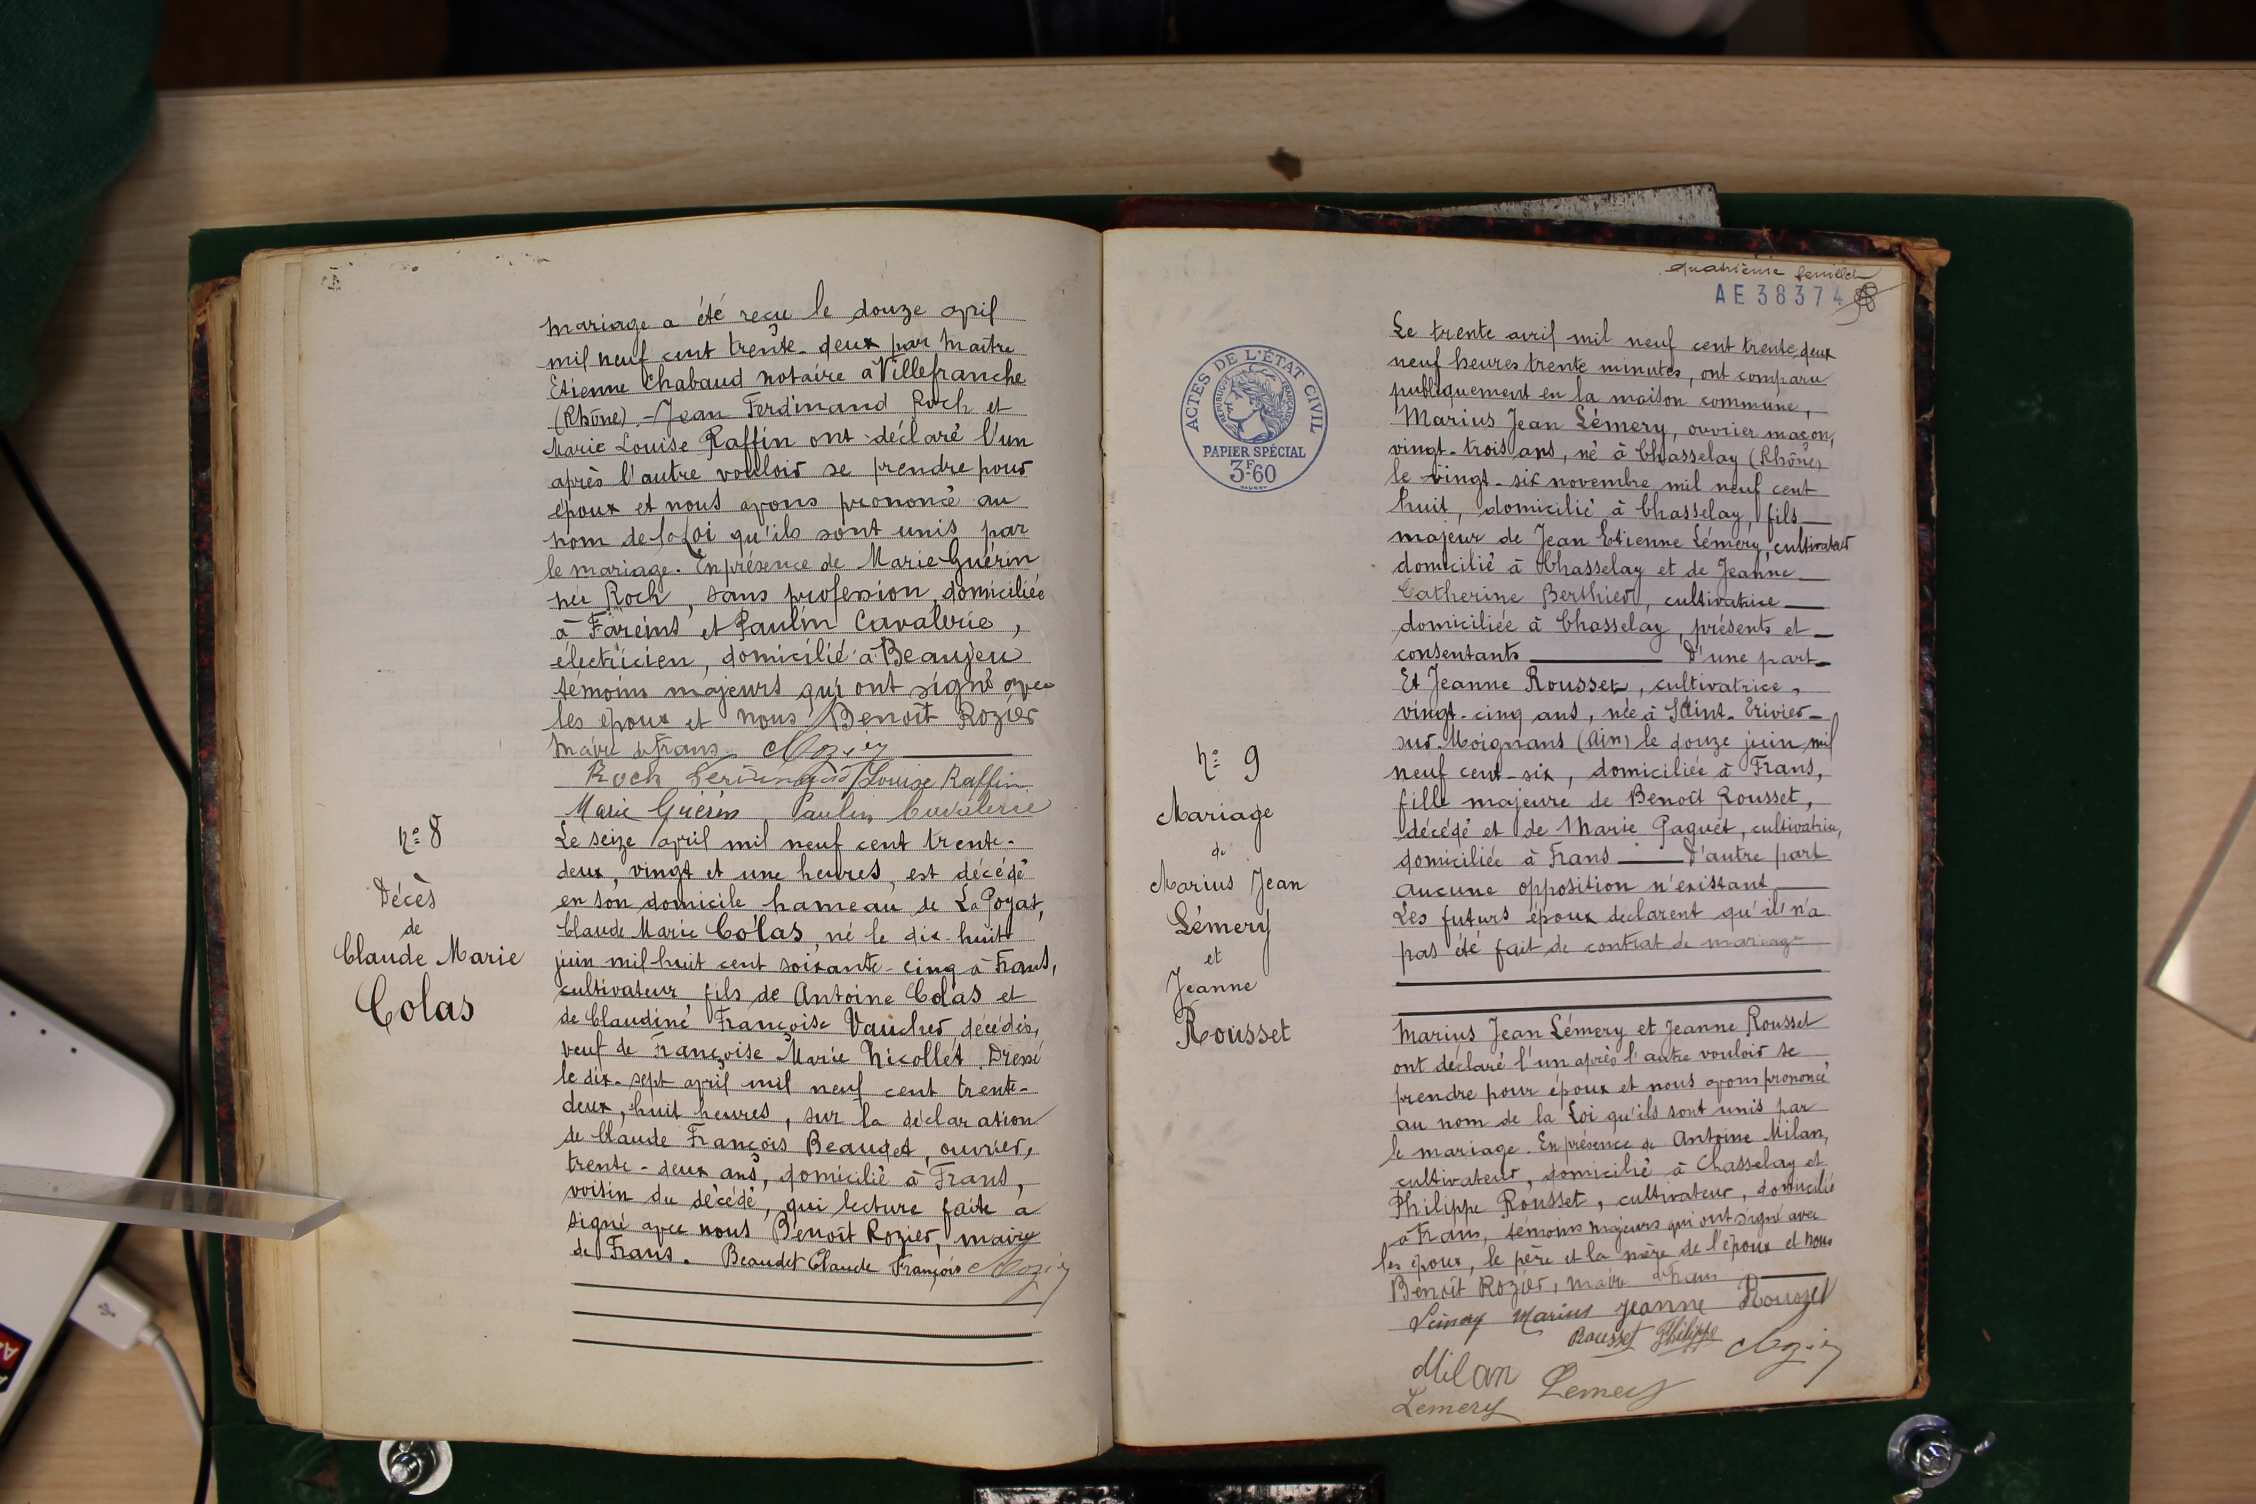 mariage a été reçu le douze avril
mil neuf cent trente-deux par Maître
Etienne Chabaud notaire à Villefranche
(Rhône). - Jean Ferdinand Roch et
Marie Louise Raffin ont déclaré l'un
après l'autre vouloir se prendre pour
époux et nous avons prononcé au
nom de la Loi qu'ils sont unis par
le mariage. En présence de Marie Guérin
née Roch, sans profession, domiciliée
à Fareins et Paulin Cavalerie,
électricien, domicilié à Beaujeu
témoins majeurs qui ont signé avec
les époux et nous Benoît Rozier
Maire de Frans. Rozier
Roch Ferdinand Louise Raffin
Marie Guérin Paulin Cavalerie
N° 8
Décès
de
Claude Marie
Colas
Le seize avril mil neuf cent trente-
deux, vingt et une heures, est décédé
en son domicile hameau de La Poyat,
Claude Marie Colas, né le dix-huit
juin mil huit cent soixante-cinq à Frans,
cultivateur, fils de Antoine Colas et
de Claudine Françoise Vaucher décédés,
veuf de Françoise Marie Nicollet. Dressé
le dix-sept avril mil neuf cent trente-
deux, huit heures, sur la déclaration
de Claude François Beaudet, ouvrier,
trente-deux ans, domicilié à Frans,
voisin du décédé, qui lecture faite a
signé avec nous Benoît Rozier, maire
de Frans. Beaudet Claude François Rozier
quatrième feuillet
AE 38374
ACTES DE L'ÉTAT CIVIL
RÉPUBLIQUE FRANÇAISE
PAPIER SPÉCIAL
3F60
N° 9
Mariage
de
Marius Jean
Lémery
et
Jeanne
Rousset
Le trente avril mil neuf cent trente-deux
neuf heures trente minutes, ont comparu
publiquement en la maison commune,
Marius Jean Lémery, ouvrier maçon,
vingt-trois ans, né à Chasselay (Rhône)
le vingt-six novembre mil neuf cent
huit, domicilié à Chasselay, fils
majeur de Jean Etienne Lémery, cultivateur
domicilié à Chasselay et de Jeanne
Catherine Berthier, cultivatrice
domiciliée à Chasselay, présents et
consentants D'une part
Et Jeanne Rousset, cultivatrice,
vingt-cinq ans, née à Saint-Trivier-
sur-Moignans (Ain) le douze juin mil
neuf cent-six, domiciliée à Frans,
fille majeure de Benoît Rousset,
décédé et de Marie Paquet, cultivatrice,
domiciliée à Frans D'autre part
aucune opposition n'existant
Les futurs époux déclarent qu'il n'a
pas été fait de contrat de mariage
Marius Jean Lémery et Jeanne Rousset
ont déclaré l'un après l'autre vouloir se
prendre pour époux et nous avons prononcé
au nom de la Loi qu'ils sont unis par
le mariage. En présence de Antoine Milan,
cultivateur, domicilié à Chasselay et
Philippe Rousset, cultivateur, domicilié
à Frans, témoins majeurs qui ont signé avec
les époux, le père et la mère de l'époux et nous
Benoît Rozier, maire de Frans
Lémery Marius Jeanne Rousset
Rousset Philippe Rozier
Milan Lemery
Lemery